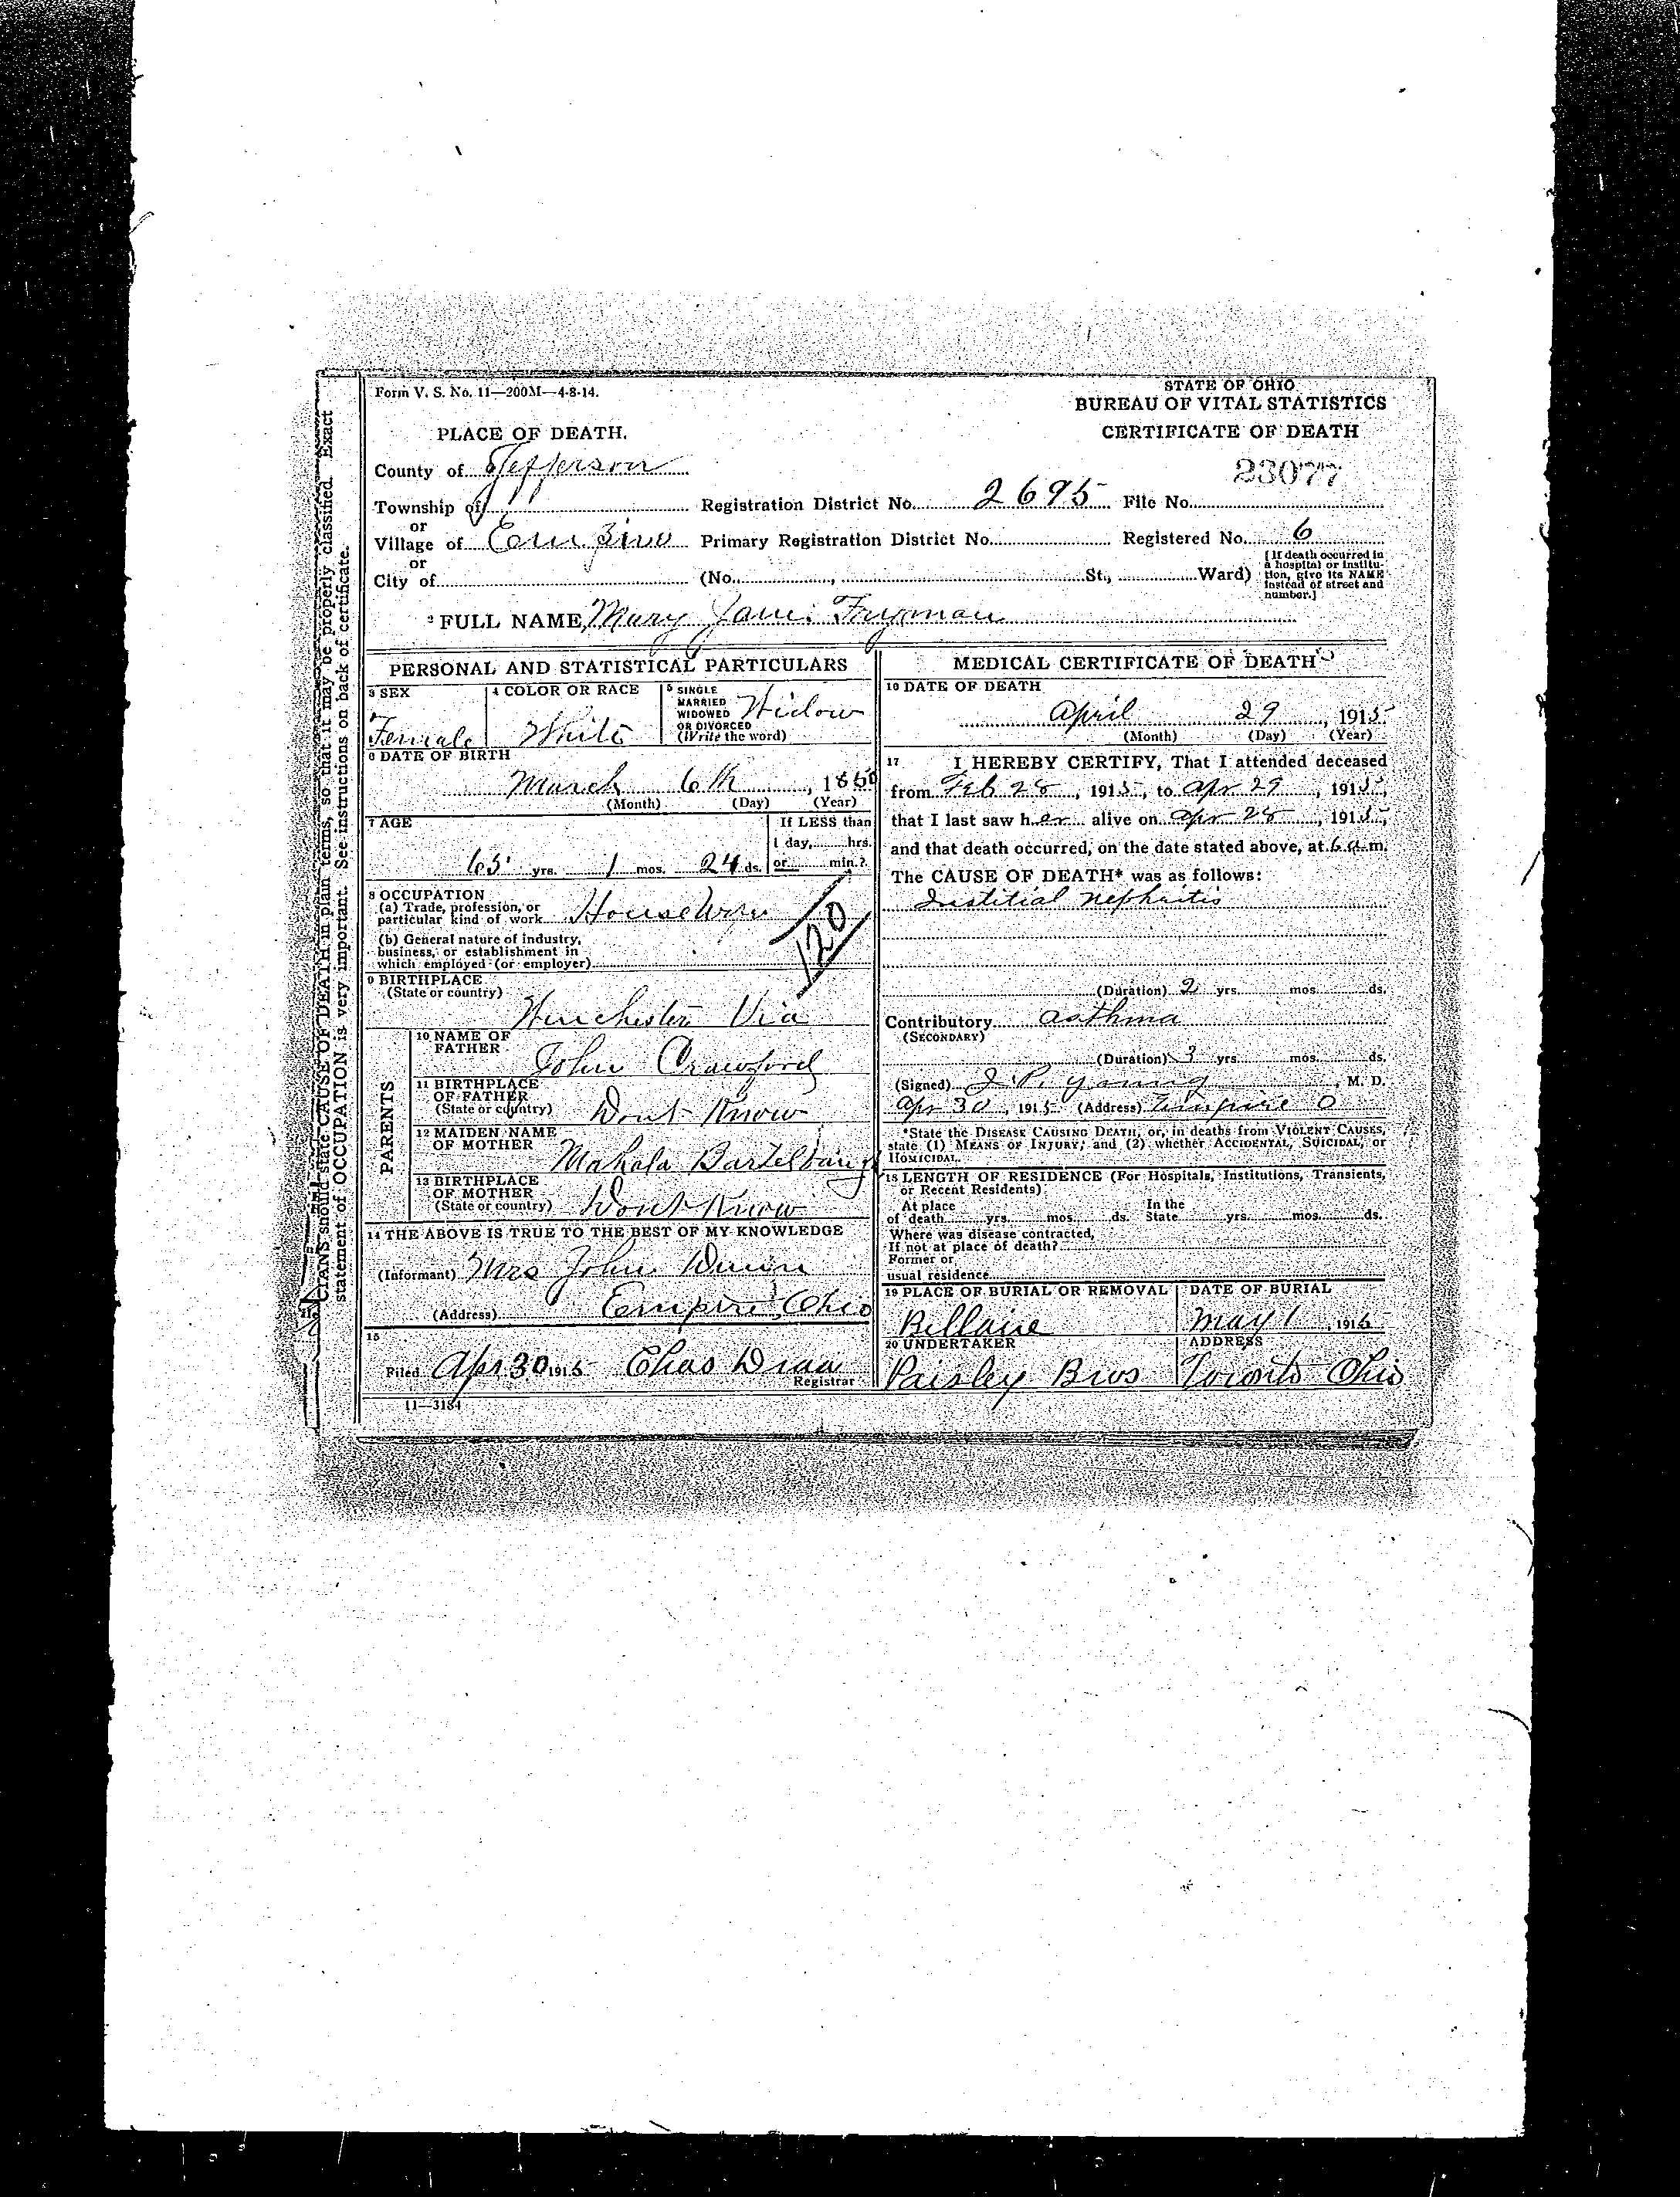 Form V. S. No. 11—200M—4-8-14.
STATE OF OHIO
BUREAU OF VITAL STATISTICS
CERTIFICATE OF DEATH
PLACE OF DEATH.
County of Jefferson
23077
Township of
Registration District No. 2695 File No.
or
Village of Empire Primary Registration District No. Registered No. 6
or
City of (No. , St., Ward)
[If death occurred in
a hospital or institu-
tion, give its NAME
instead of street and
number.]
2 FULL NAME Mary Jane Fryman
PERSONAL AND STATISTICAL PARTICULARS
3 SEX
Female
4 COLOR OR RACE
White
5 SINGLE
MARRIED
WIDOWED
OR DIVORCED
(Write the word)
Widow
6 DATE OF BIRTH
March 6th, 1850
(Month) (Day) (Year)
7 AGE
65 yrs. 1 mos. 24 ds.
If LESS than
1 day, hrs.
or min.?
8 OCCUPATION
(a) Trade, profession, or
particular kind of work
(b) General nature of industry,
business, or establishment in
which employed (or employer)
120
9 BIRTHPLACE
(State or country)
Winchester Via
PARENTS
10 NAME OF
FATHER
John Crawford
11 BIRTHPLACE
OF FATHER
(State or country)
Dont Know
12 MAIDEN NAME
OF MOTHER
Mahala
13 BIRTHPLACE
OF MOTHER
(State or country)
Dont Know
14 THE ABOVE IS TRUE TO THE BEST OF MY KNOWLEDGE
(Informant) Mrs John
(Address) Empire, Ohio
15
Filed Apr 30 1915 Chas
Registrar
11—3184
MEDICAL CERTIFICATE OF DEATH
16 DATE OF DEATH
April 29, 1915
(Month) (Day) (Year)
17 I HEREBY CERTIFY, That I attended deceased
from Feb 28, 1915, to Apr 29, 1915,
that I last saw her alive on Apr 28, 1915,
and that death occurred, on the date stated above, at 6 a.m.
The CAUSE OF DEATH* was as follows:
Institial nephritis
(Duration) 2 yrs. mos. ds.
Contributory asthma
(SECONDARY)
(Duration) 3 yrs. mos. ds.
(Signed) J. P. Young, M. D.
Apr 30, 1915 (Address) Empire O
*State the DISEASE CAUSING DEATH, or, in deaths from VIOLENT CAUSES,
state (1) MEANS OF INJURY; and (2) whether ACCIDENTAL, SUICIDAL, or
HOMICIDAL.
18 LENGTH OF RESIDENCE (For Hospitals, Institutions, Transients,
or Recent Residents)
At place
of death yrs. mos. ds.
In the
State yrs. mos. ds.
Where was disease contracted,
If not at place of death?
Former or
usual residence
19 PLACE OF BURIAL OR REMOVAL
Bellaire
DATE OF BURIAL
May 1, 1915
20 UNDERTAKER
Paisley Bros
ADDRESS
Toronto Ohio
CIANS should state CAUSE OF DEATH in plain terms, so that it may be properly classified. Exact
statement of OCCUPATION is very important. See instructions on back of certificate.